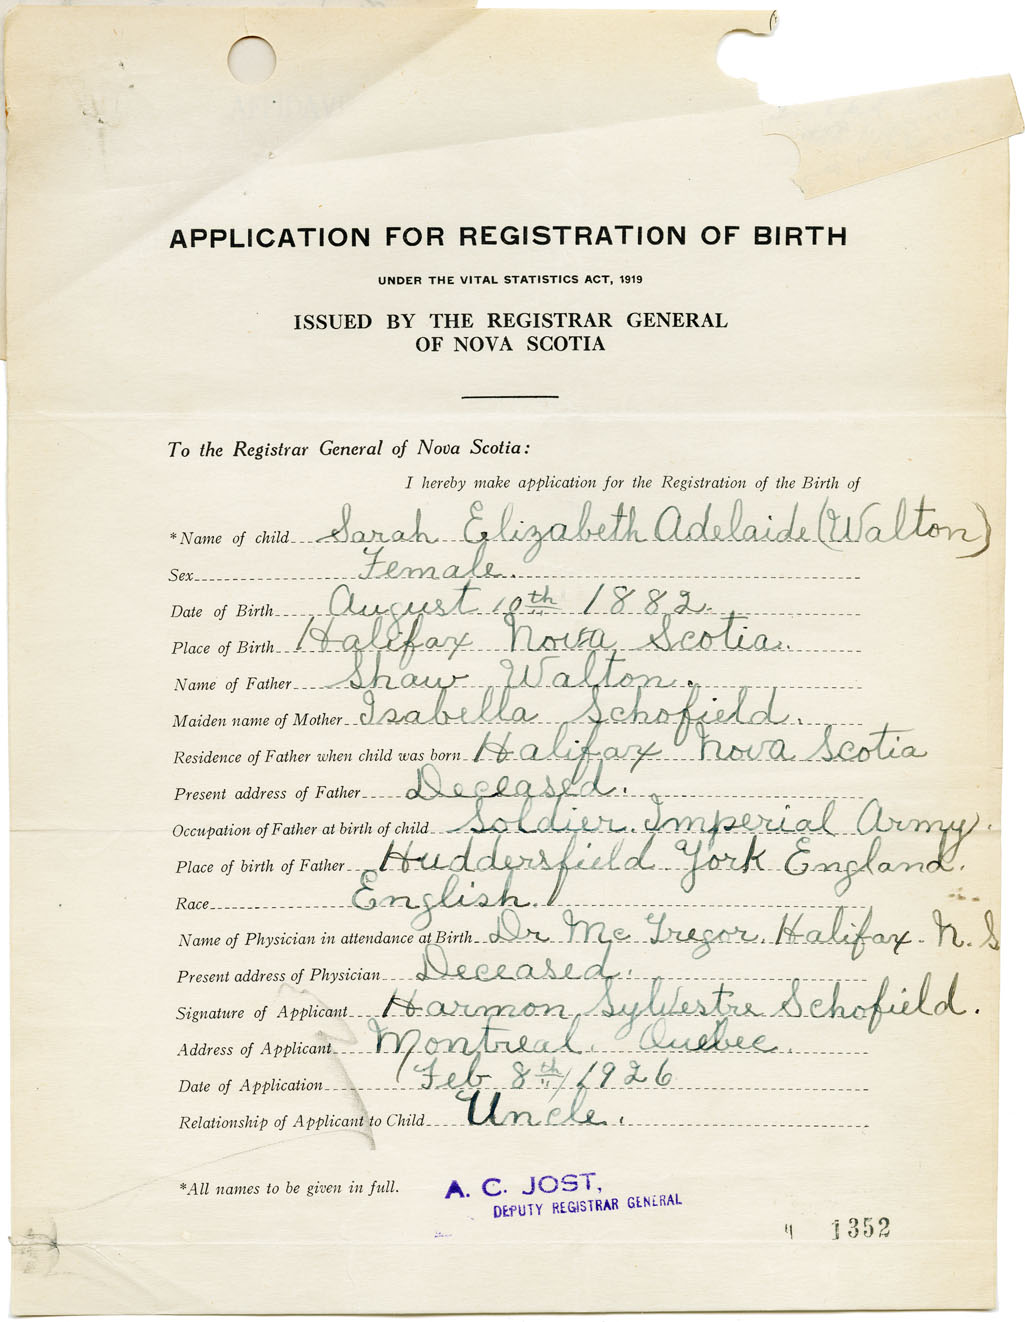 APPLICATION FOR REGISTRATION OF BIRTH
UNDER THE VITAL STATISTICS ACT, 1919
ISSUED BY THE REGISTRAR GENERAL
OF NOVA SCOTIA
To the Registrar General of Nova Scotia:
I hereby make application for the Registration of the Birth of
*Name of child Sarah Elizabeth Adelaide (Walton)
Sex Female.
Date of Birth August 10th 1882.
Place of Birth Halifax Nova Scotia.
Name of Father Shaw Walton.
Maiden name of Mother Isabella Schofield.
Residence of Father when child was born Halifax Nova Scotia
Present address of Father Deceased.
Occupation of Father at birth of child Soldier. Imperial Army.
Place of birth of Father Huddersfield York England.
Race English.
Name of Physician in attendance at Birth Dr Mc Gregor. Halifax. N. S
Present address of Physician Deceased.
Signature of Applicant Harmon Sylvestre Schofield.
Address of Applicant Montreal. Quebec.
Date of Application Feb 8th/1926
Relationship of Applicant to Child Uncle.
*All names to be given in full.
A. C. JOST,
DEPUTY REGISTRAR GENERAL
1352